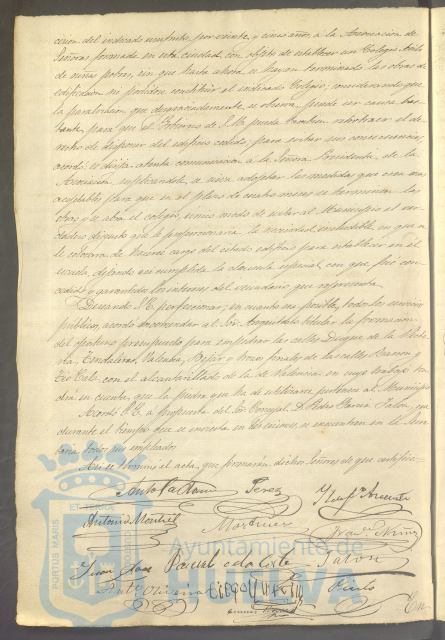 cesion del indicado convento, por veinte y cinco años, á la Asociacion de
Señoras formada en esta ciudad con objeto de establecer un Colegio Asilo
de niñas pobres, sin que hasta ahora se hayan terminado las obras de
edificacion ni podídose constituir el indicado Colegio; considerando que
la paralizacion que desgraciadamente se observa, puede ser causa bas-
tante para que el Gobierno de S. M. pueda tambien retrotraer el de-
recho de disponer del edificio cedido, para evitar sus consecuencias,
acordó: se dirija atenta comunicacion á la Señora Presidenta de la
Asociacion, suplicándole se sirva adoptar las medidas que crea mas
aceptables para que en el plazo de cuatro meses se terminen las
obras y se abra el colegio, unico modo de evitar al Municipio el ver-
dadero disgusto que le proporcionaria la necesidad ineludible en que se
le colocara de hacerse cargo del citado edificio para establecer en él
escuela, dejando asi cumplida la clausula especial con que fué con-
cedido y garantidos los intereses del vecindario que representa.
Deseando S. E. perfeccionar, en cuanto sea posible, todos los servicios
públicos, acordó encomendar al Sor. Arquitecto titular la formacion
del oportuno presupuesto para empedrar las calles Duque de la Victo-
ria, Tendaleras, Valencia, Béjar y trozos finales de las calles Ramon y
Cio Cal con el alcantarillado de la de Valencia en cuyo trabajo ten-
drá en cuenta que la piedra que ha de utilizarse pertenece al Municipio
Acordó S. E. á propuesta del Sor. Concejal D. Pedro Garcia Jalon, que
durante el tiempo que se invierta en las sesiones, se encuentren en la Secre-
taria todos sus empleados
Asi se termina el acta que firmarán dichos Señores de que certifico
Perez
Antonio Montiel
Martinez
Juan José
Jalon
PORTUS MARIS
ET TERRAE
Ayuntamiento de
HUELVA